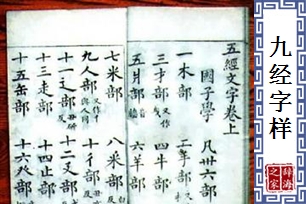 五經文字卷上
國子學 凡卅六部
一木部 二手部
三才部 四牛部
六羊部
七米部 八米部
九人部 十彳部
十二夊部
十三走部 十四止部
十五缶部 十六癶部
九经字样
辞海
之家